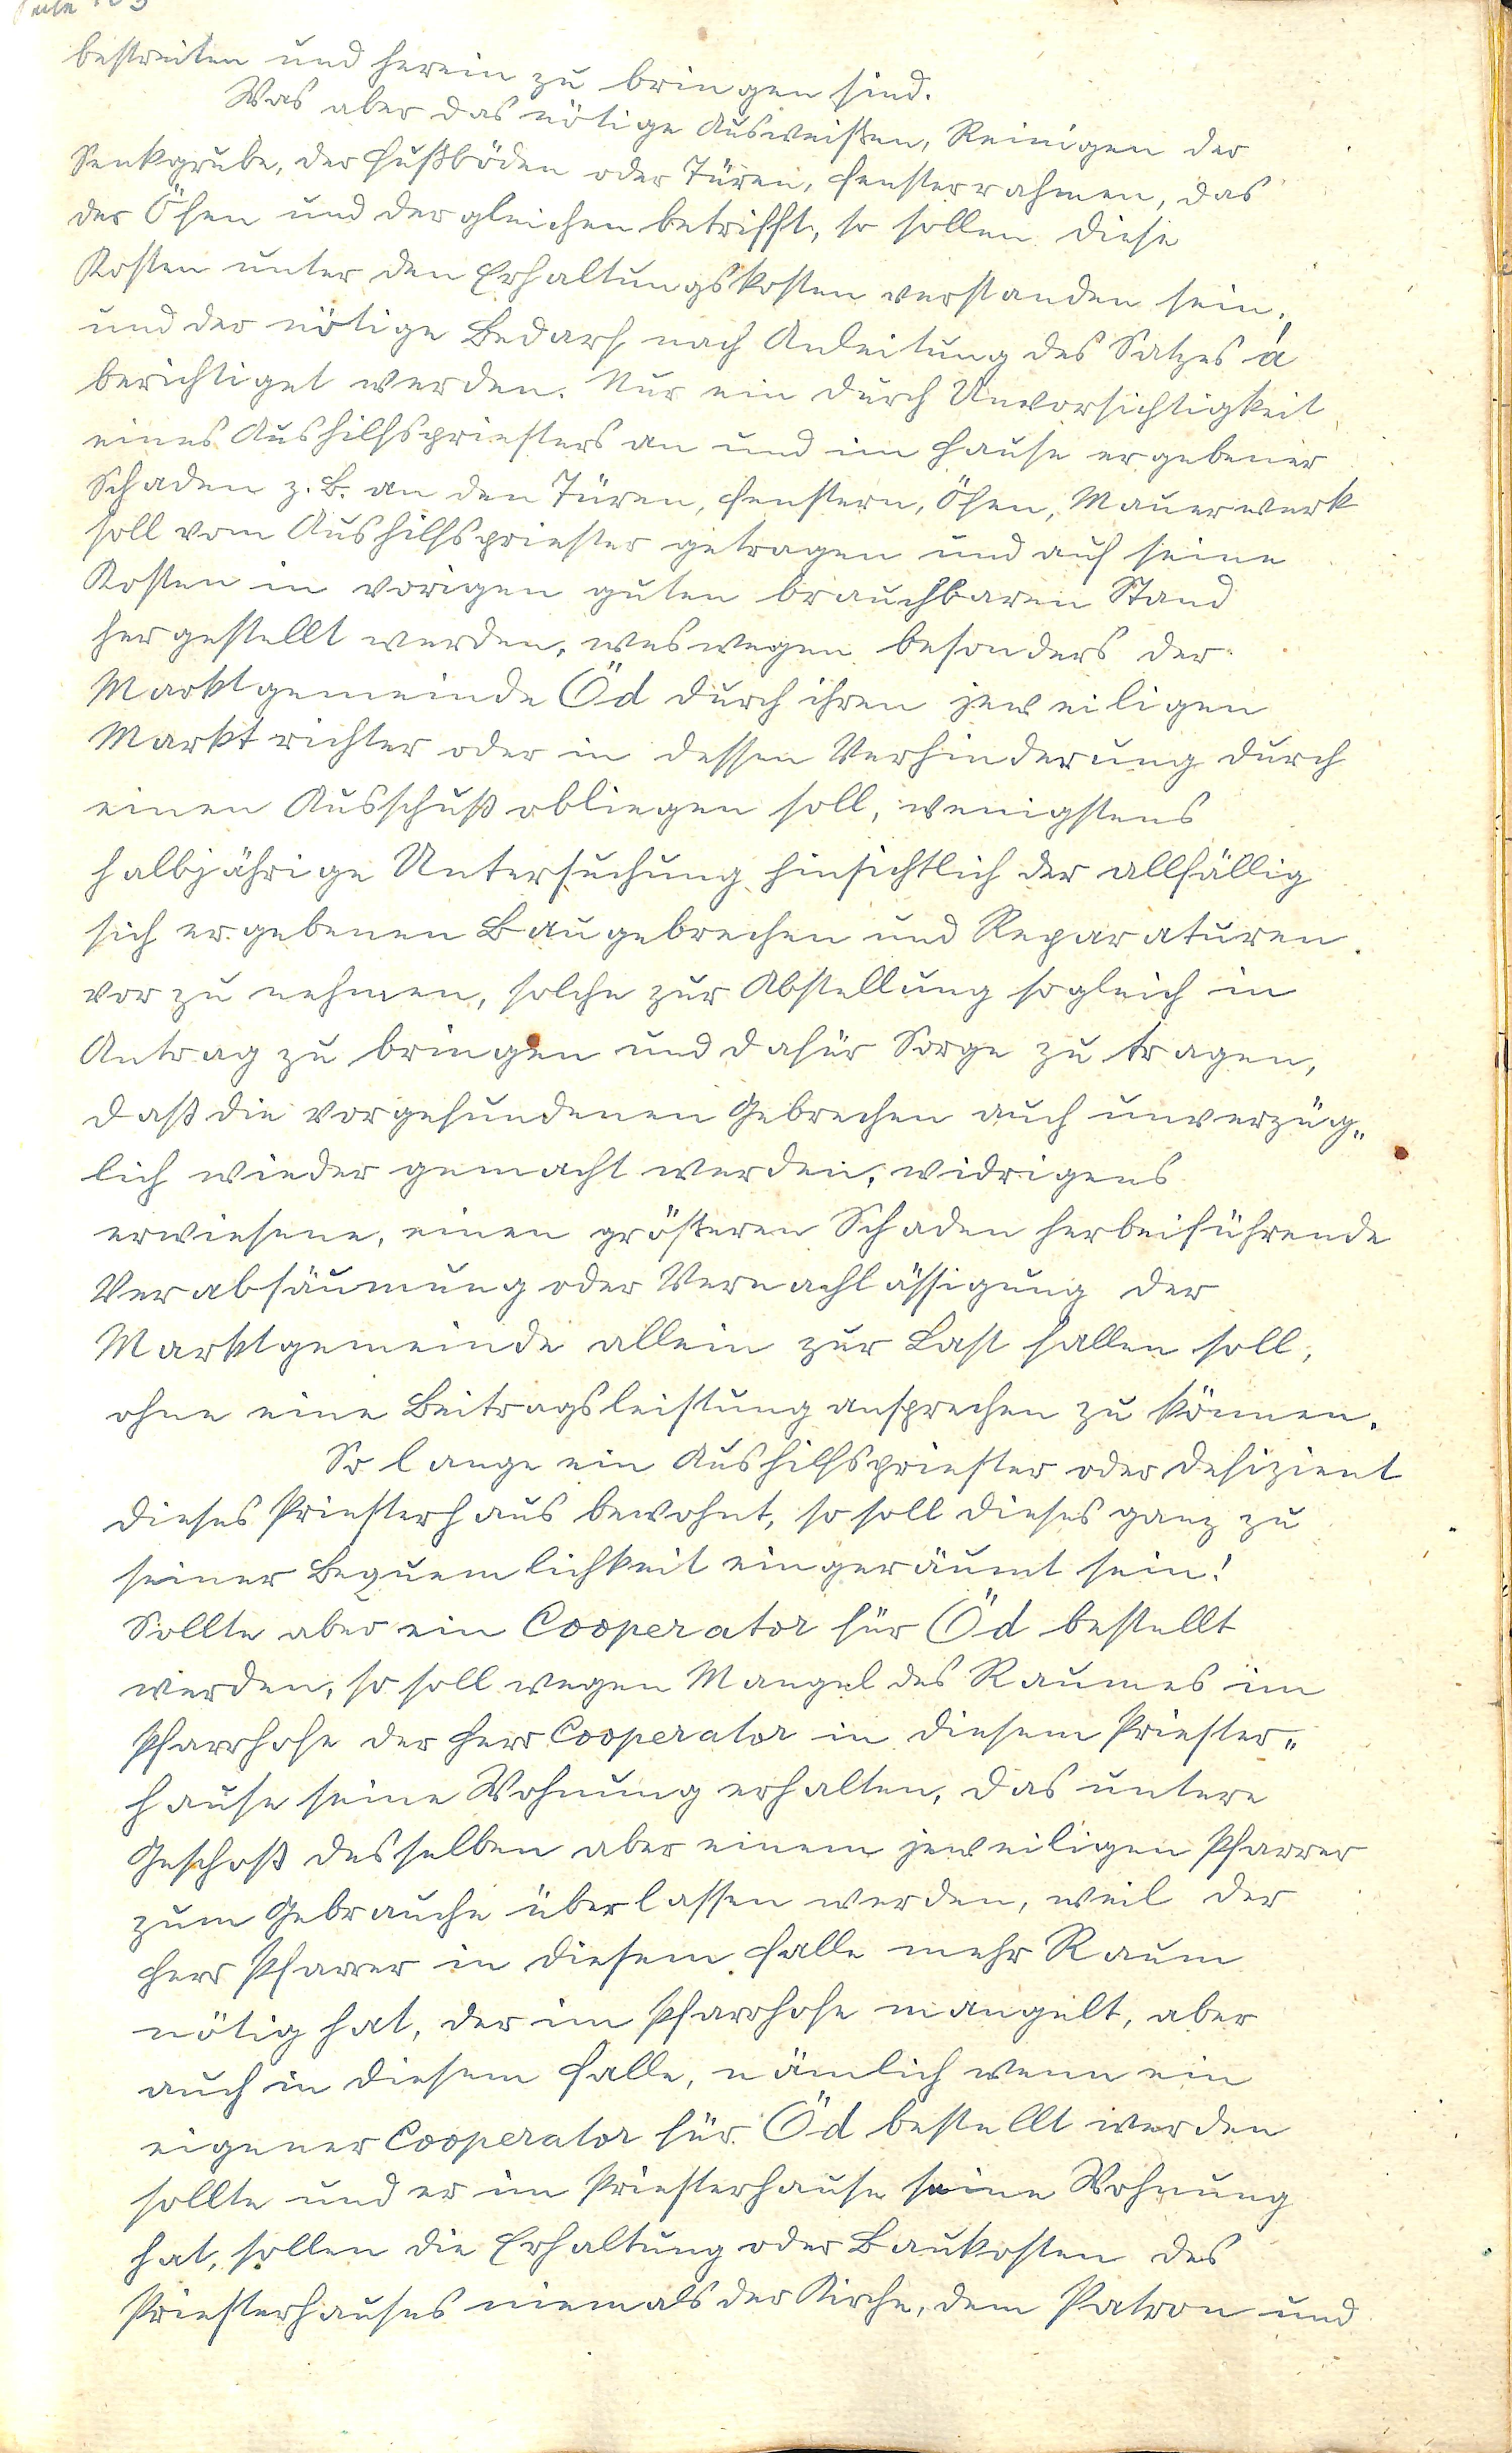 bestreiten und herein zu bringen sind.
Was aber das nötige Ausweißen, Reinigen der
Senkgrube, der Fußböden oder Türen, Fensterrahmen, das
der Öfen und dergleichen betrifft, so sollen diese
Kosten unter den Erhaltungskosten verstanden sein,
und der nötige Bedarf nach Anleitung des Satzes á
berichtiget werden. Nur ein durch Unvorsichtigkeit
eines Aushilfspriesters an und im Hause ergebener
Schaden z. B. an den Türen, Fenstern, Öfen, Mauerwerk
soll vom Aushilfspriester getragen und auf seine
Kosten in vorigen guten brauchbaren Stand
hergestellt werden, weswegen besonders der
Marktgemeinde Öd durch ihren jeweiligen
Marktrichter oder in dessen Verhinderung durch
einen Ausschuß obliegen soll, wenigstens
halbjährige Untersuchung hinsichtlich der allfällig
sich ergebenen Baugebrechen und Reparaturen
vor zu nehmen, solche zur Abstellung sogleich in
Antrag zu bringen und dafür Sorge zu tragen,
daß die vorgefundenen Gebrechen auch unverzüg„
lich wieder gemacht werden, widrigens
erwiesene, einen größeren Schaden herbeiführende
Verabsäumung oder Vernachlässigung der
Marktgemeinde allein zur Last fallen soll,
ohne eine Beitragsleistung ansprechen zu können.
So lange ein Aushilfspriester oder Defizient
dieses Priesterhaus bewohnt, so soll dieses ganz zu
seiner Bequemlichkeit eingeräumt sein!
Sollte aber ein Cooperator für Öd bestellt
werden, so soll wegen Mangel des Raumes im
Pfarrhofe der Herr Cooperator in diesem Priester„
hause seine Wohnung erhalten, das untere
Geschoß desselben aber einem jeweiligen Pfarrer
zum Gebrauche überlassen werden, weil der
Herr Pfarrer in diesem Falle mehr Raum
nötig hat, der im Pfarrhofe mangelt, aber
auch in diesem Falle, nämlich wenn ein
eigener Cooperator für Öd bestellt werden
sollte und er im Priesterhause seine Wohnung
hat, sollen die Erhaltung oder Baukosten des
Priesterhauses niemals der Kirche, dem Patron und